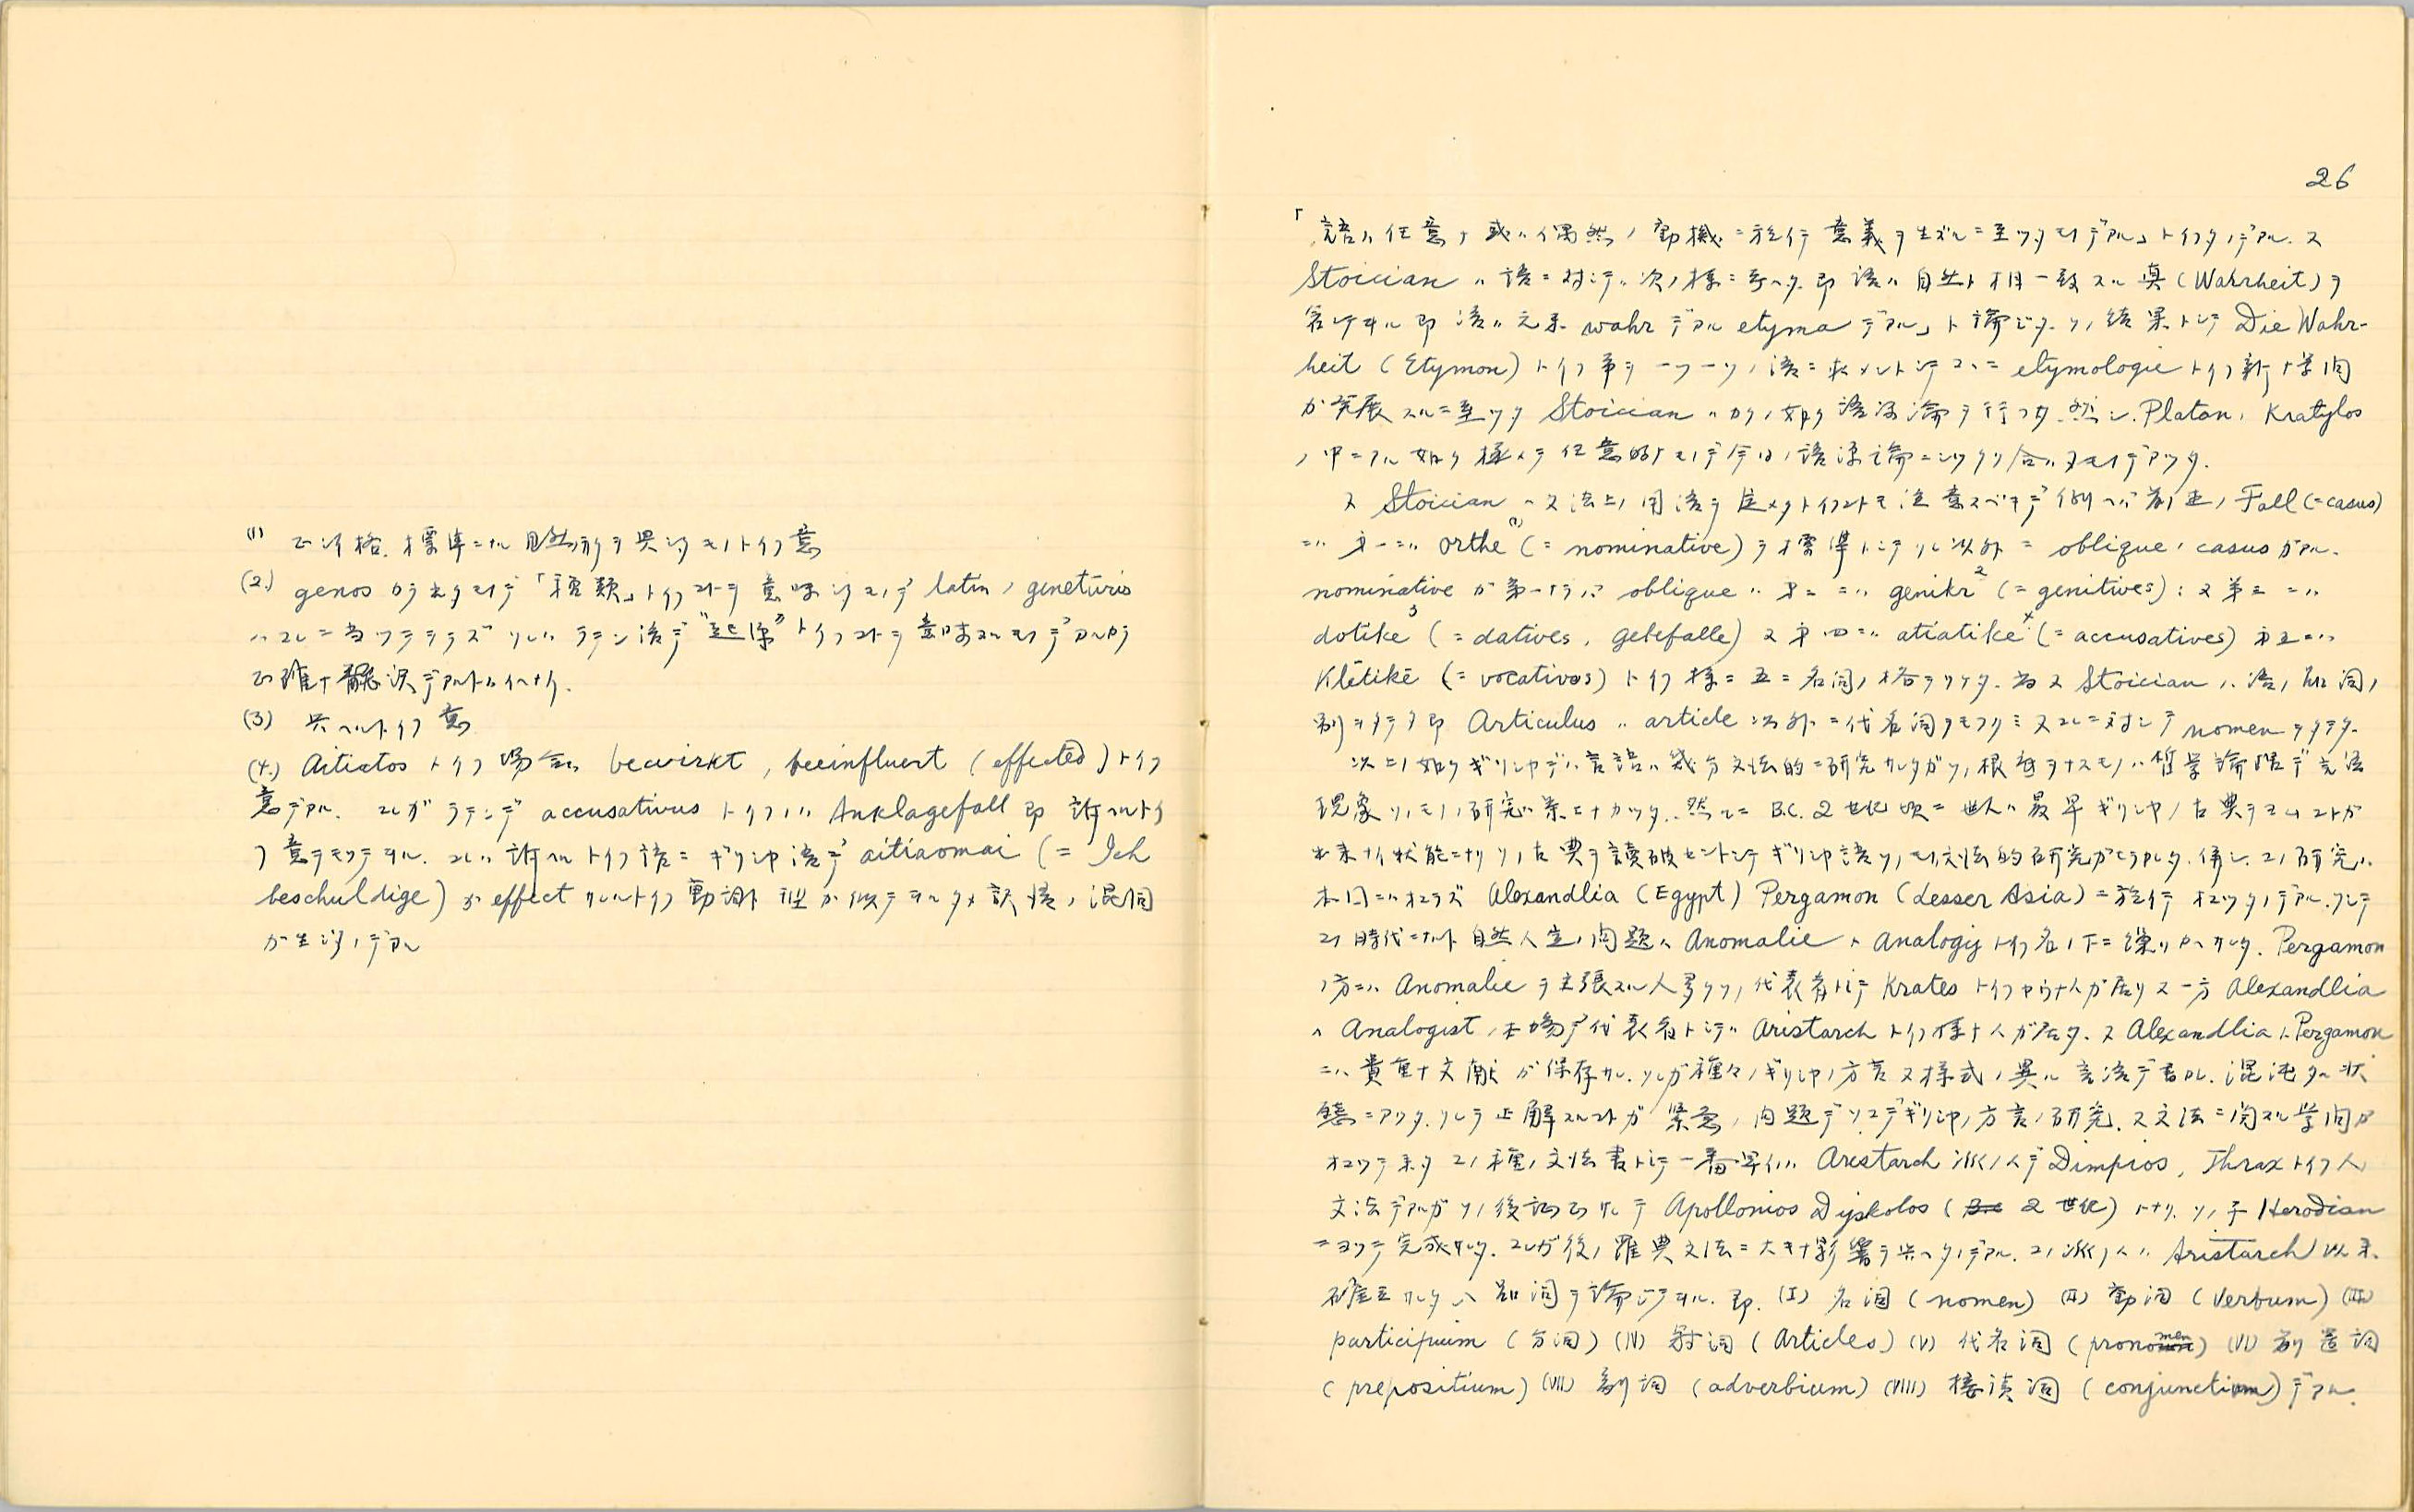 (1) 正シイ格. 標準ニナル 自然形ヲ 具ヘタモノトイフ意
(2.) genos カラ出タモノデ「種類」トイフコトヲ 意味シタモノデ latin ノ genetivus
ハコレニ当ツテヲラズ ソレハ ラテン語デ "起源" トイフコトヲ 意味スルモノデアルカラ
正確ナ飜訳デアルトハイヘナイ.
(3) 与ヘルトイフ意
(4.) Aitiatos トイフ場合ハ bewirkt, beeinflusst (effected) トイフ
意デアル. コレガ ラテンデ accusativus トイフノハ Anklagefall 即 訴ヘルトイ
フ意ヲモツテヰル. コレハ 訴ヘルトイフ語ニ ギリシヤ語デ aitiaomai (= Ich
beschuldige) ガ effect サレルトイフ動詞ト 型ガ似テヰルタメ 誤 ノ混同
ガ生ジタノデアル
26
「語ハ任意ナ或ハ偶然ノ動機ニ於イテ 意義ヲ生ズルニ至ツタモノデアル」トイフタノデアル. 又
Stoician ハ語ニ対シテハ次ノ様ニ考ヘタ. 即 語ハ自然ト相一致スル 真 (Wahrheit) ヲ
容シテヰル 即 語ハ元来 wahr デアル etyma デアル」ト論ジタ. ソノ結果トシテ Die Wahr-
heit (Etymon) トイフ事ヲ 一ツ一ツノ語ニ求メントシテ ココニ etymologie トイフ新ナ学問
ガ発展スルニ至ツタ Stoician ハカクノ如ク語源論ヲ行ツタ. 然シ. Platon ノ Kratylos
ノ中ニアル如ク極メテ任意的ナモノデ今日ノ語源論ニシツクリ合ハヌモノデアツタ.
又 Stoician ハ文法上ノ用語ヲ定メタトイフコトモ注意スベキデ 例ヘバ 前述ノ Fall (=casus)
ニハ 第一ニハ orthe(1) (= nominative) ヲ標準トシテ ソレ以外ニ oblique ノ casus ガアル.
nominative ガ第一ナラバ oblique ハ 第二ニハ genikr2 (= genitives) : 又第三ニハ
dotike3 (= datives, gebefalle) 又第四ニハ atiatike4 (= accusatives) 第五ニハ
Klētikē (= vocatives) トイフ様ニ 五ニ名詞ノ格ヲワケタ. 尚又 Stoician ハ語ノ品詞ノ
別ヲタテタ 即 Articulus ハ article 以外ニ代名詞ヲモフクミ 又コレニ対シテ nomen ヲタテタ.
以上ノ如ク ギリシヤデハ言語ハ幾分文法的ニ研究サレタガ ソノ根底ヲナスモノハ哲学論理デ言語
現象ソノモノノ研究ハ来ナカツタ. 然ルニ B.C. 2世紀頃ニ 世人ハ最早ギリシヤノ古典ヲヨムコトガ
出来ナイ状態ニナリソノ古典ヲ讀破セントシテ ギリシヤ語ソノモノノ文法的研究ガ サレタ. 併シ. コノ研究ハ
本国ニハオコラズ Alexandlia (Egypt) Pergamon (Lesser Asia) ニ於イテ オコツタノデアル. ソシテ
コノ時代ニナルト 自然人定ノ問題ハ Anomalie ト Analogy トイフ名ノ下ニ繰リカヘサレタ. Pergamon
ノ方ニハ Anomalie ヲ主張スル人多クソノ代表者トシテ Krates トイフヤウナ人ガ居リ 又一方 Alexandlia
ハ Analogist ノ本場デ代表者トシテハ Aristarch トイフ様ナ人ガ居タ. 又 Alexandlia ト Pergamon
ニハ 貴重ナ文献ガ保存サレ. ソレガ種々ノギリシヤノ方言又様式ノ異ル言語デ書カレ. 混沌タル状
態ニアツタ. ソレヲ正解スルコトガ 緊急ノ問題デソコデギリシヤノ方言ノ研究. 又文法ニ関スル学問ガ
オコツテ来タ コノ種ノ文法書トシテ一番早イノハ Aristarch 派ノ人デ Dimpios, Thrax トイフ人
文法デアルガ ソノ後 サレテ Apollonios Dyskolos (2世紀) トナリ. ソノ子 Herodian
ニヨツテ完成サレタ. コレガ後ノ羅典文法ニ大キナ影響ヲ与ヘタノデアル. コノ派ノ人ハ Aristarch 以来
確立サレタ八品詞ヲ論ジテヰル. 即. (I) 名詞 (nomen) (II) 動詞 (Verbum) (III)
participium (分詞) (IV) 冠詞 (Articles) (V) 代名詞 (pronomen) (VI) 前置詞
(prepositium) (VII) 副詞 (adverbium) (VIII) 接続詞 (conjunctium) デアル.